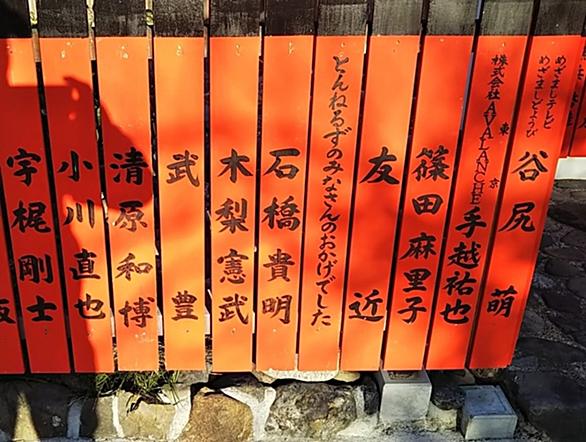 めざましテレビ
めざましどようび
谷尻 萌
株式会社 AVALANCHE 手越祐也
東京
篠田麻里子
友近
とんねるずのみなさんのおかげでした
石橋貴明
木梨憲武
武 豊
清原和博
小川直也
宇梶剛士